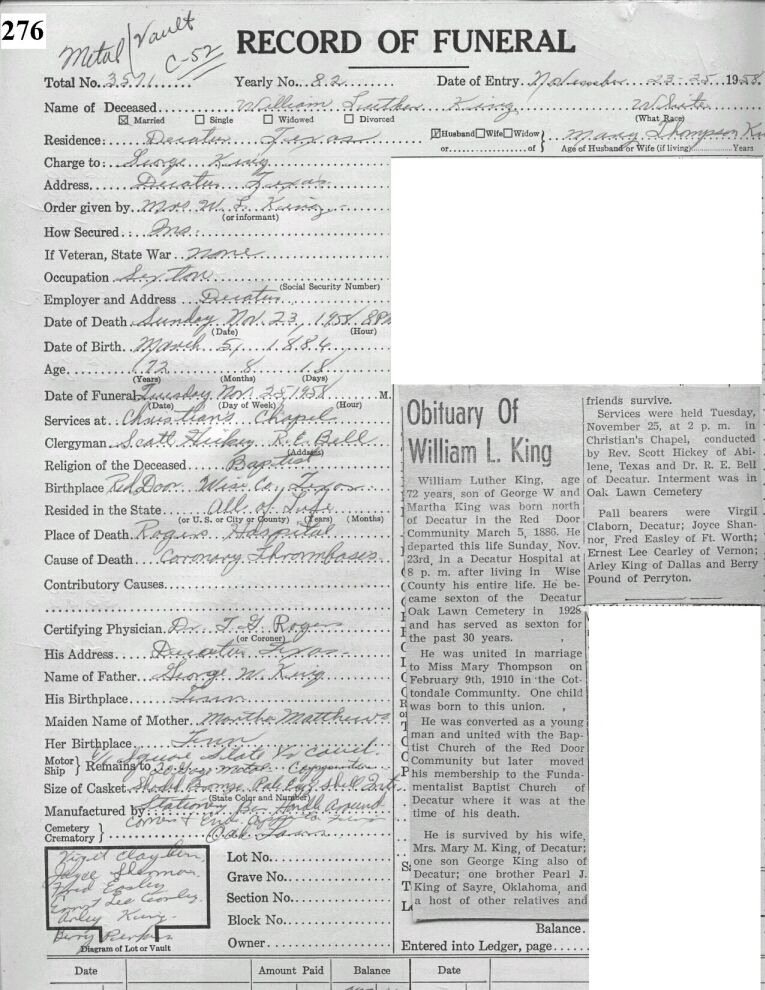 276
Metal/Vault
C-52
RECORD OF FUNERAL
Total No. 3571 Yearly No. 82 Date of Entry November 23-25 1958
Name of Deceased William Luther King White
☒ Married ☐ Single ☐ Widowed ☐ Divorced (What Race)
Residence: Decatur Texas ☑ Husband ☐ Wife ☐ Widow } Mary Thompson
or of Age of Husband or Wife (if living) Years
Charge to: George King
Address Decatur Texas
Order given by Mrs W. L. King
(or informant)
How Secured: Ins.
If Veteran, State War none
Occupation Sexton
(Social Security Number)
Employer and Address Decatur
Date of Death Sunday Nov. 23, 1958 8PM
(Date) (Hour)
Date of Birth March 5, 1886
Age 72 8 18
(Years) (Months) (Days)
Date of Funeral Tuesday Nov. 25 1958 M.
(Date) (Day of Week) (Hour)
Services at Christian's Chapel
Clergyman Scott Hickey R.E. Bell
(Address)
Religion of the Deceased Baptist
Birthplace Red Door Wise Co, Texas
Resided in the State All of Life
(or U. S. or City or County) (Years) (Months)
Place of Death Rogers Hospital
Cause of Death Coronary Thrombases
Contributory Causes
Certifying Physician Dr. T G Rogers
(or Coroner)
His Address Decatur Texas
Name of Father George W. King
His Birthplace Tenn
Maiden Name of Mother Martha Matthews
Her Birthplace Tenn
Square State
Motor Ship } Remains to 20 Metal
Size of Casket Shaded Bronze
(State Color and Number)
Manufactured by Stationary Bar Handle
Corner & End
Cemetery Crematory } Oak Lawn
Virgil Clayborn
Joyce Shannon
Fred Easley
Ernest Lee Cearley
Arley King
Berry
Diagram of Lot or Vault
Lot No.
Grave No.
Section No.
Block No.
Owner
Obituary Of
William L. King
William Luther King, age
72 years, son of George W and
Martha King was born north
of Decatur in the Red Door
Community March 5, 1886. He
departed this life Sunday, Nov.
23rd, in a Decatur Hospital at
8 p. m. after living in Wise
County his entire life. He be-
came sexton of the Decatur
Oak Lawn Cemetery in 1928
and has served as sexton for
the past 30 years.
He was united in marriage
to Miss Mary Thompson on
February 9th, 1910 in the Cot-
tondale Community. One child
was born to this union.
He was converted as a young
man and united with the Bap-
tist Church of the Red Door
Community but later moved
his membership to the Funda-
mentalist Baptist Church of
Decatur where it was at the
time of his death.
He is survived by his wife,
Mrs. Mary M. King, of Decatur;
one son George King also of
Decatur; one brother Pearl J.
King of Sayre, Oklahoma, and
a host of other relatives and
friends survive.
Services were held Tuesday,
November 25, at 2 p. m. in
Christian's Chapel, conducted
by Rev. Scott Hickey of Abi-
lene, Texas and Dr. R. E. Bell
of Decatur. Interment was in
Oak Lawn Cemetery
Pall bearers were Virgil
Claborn, Decatur; Joyce Shan-
nor, Fred Easley of Ft. Worth;
Ernest Lee Cearley of Vernon;
Arley King of Dallas and Berry
Pound of Perryton.
Balance.
Entered into Ledger, page
Date Amount Paid Balance Date